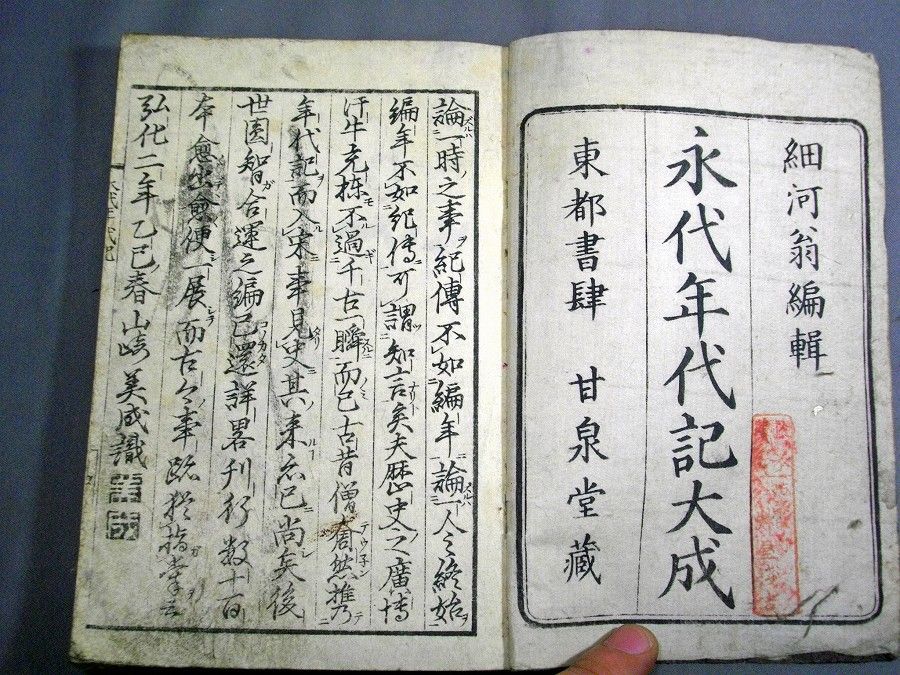 細河翁編輯
永代年代記大成
東都書肆 甘泉堂藏
論一時之事紀傳不如編年論一人之終始
編年不如紀傳可謂知言矣夫歷史之廣博
汗牛充棟不過千古一瞬而已古昔僧奝然携乃
年代記而入宋事見史其来已尚矣後
世圓智合運之編已還詳畧刊行数十百
本愈出愈便一展而古今事跡猶指掌云
弘化二年乙巳春山崎美成識
美成